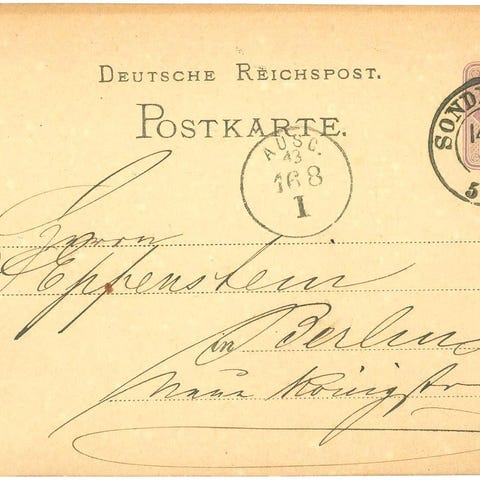 DEUTSCHE REICHSPOST.
POSTKARTE.
SOND
14
5
AUSG.
43
16 8
I
Herrn
Eppenstein
in Berlin
Neue Königstr